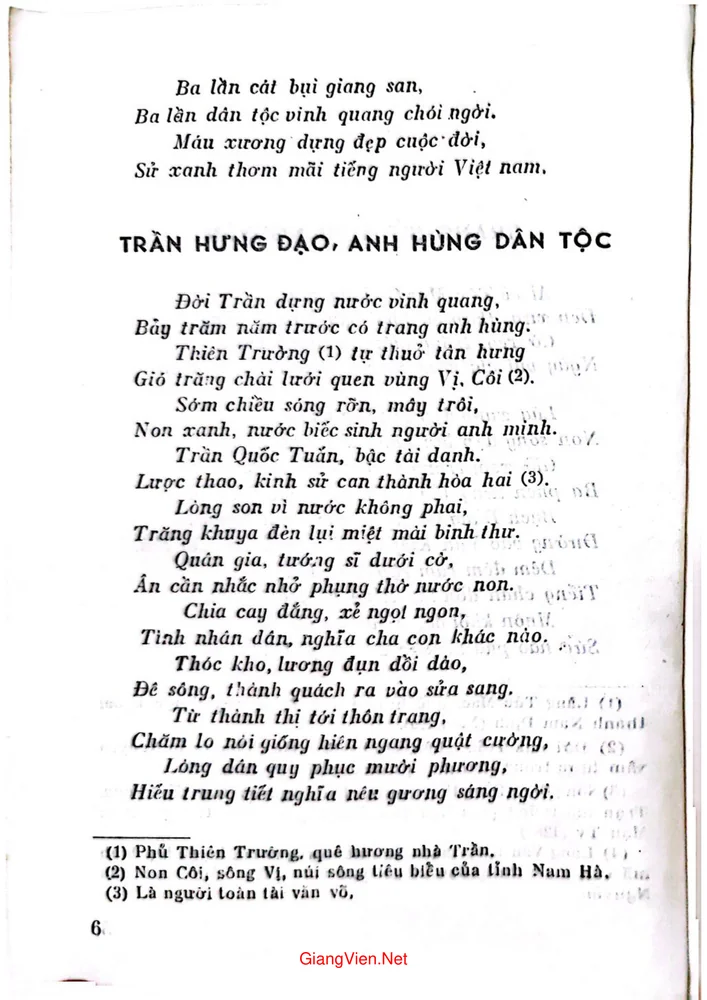 Ba lần cát bụi giang san,
Ba lần dân tộc vinh quang chói ngời.
Máu xương dựng đẹp cuộc đời,
Sử xanh thơm mãi tiếng người Việt nam.
TRẦN HƯNG ĐẠO, ANH HÙNG DÂN TỘC
Đời Trần dựng nước vinh quang,
Bảy trăm năm trước có trang anh hùng.
Thiên Trường (1) tự thuở tân hưng
Gió trăng chài lưới quen vùng Vị, Côi (2).
Sớm chiều sóng rỡn, mây trôi,
Non xanh, nước biếc sinh người anh minh.
Trần Quốc Tuấn, bậc tài danh.
Lược thao, kinh sử can thành hòa hai (3).
Lòng son vì nước không phai,
Trăng khuya đèn lụi miệt mài binh thư.
Quân gia, tướng sĩ dưới cờ,
Ân cần nhắc nhở phụng thờ nước non.
Chia cay đắng, xẻ ngọt ngon,
Tình nhân dân, nghĩa cha con khác nào.
Thóc kho, lương đụn dồi dào,
Đê sông, thành quách ra vào sửa sang.
Từ thành thị tới thôn trang,
Chăm lo nòi giống hiên ngang quật cường,
Lòng dân quy phục mười phương,
Hiếu trung tiết nghĩa nêu gương sáng ngời.
(1) Phủ Thiên Trường, quê hương nhà Trần.
(2) Non Côi, sông Vị, núi sông tiêu biểu của tỉnh Nam Hà.
(3) Là người toàn tài văn võ.
6
GiangVien.Net